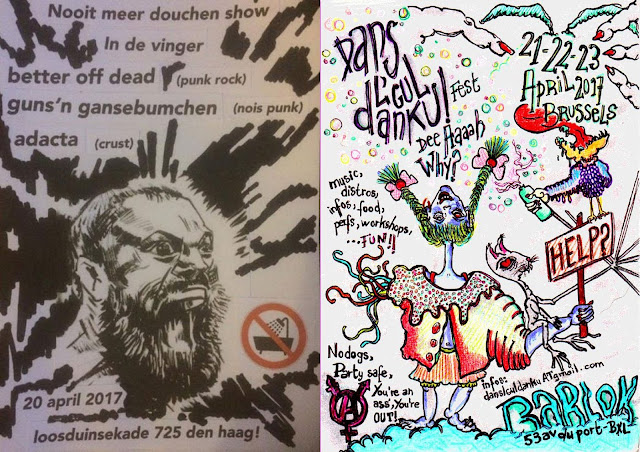 Nooit meer douchen show
In de vinger
better off dead (punk rock)
guns'n gansebumchen (nois punk)
adacta (crust)
20 april 2017
loosduinsekade 725 den haag!
DANS
L'CUL
danKu!
Fest
Dee Aaaah
Why?
21-22-23
April 2017
BRUSSELS
music,
distros,
infos, food,
perfs, workshops,
...FUN!!
HELP?
No dogs,
Party safe,
You're an
ass, You're
OUT!
infos:
danslculdankuATgmail.com
BARLOK
53 av du port-BXL